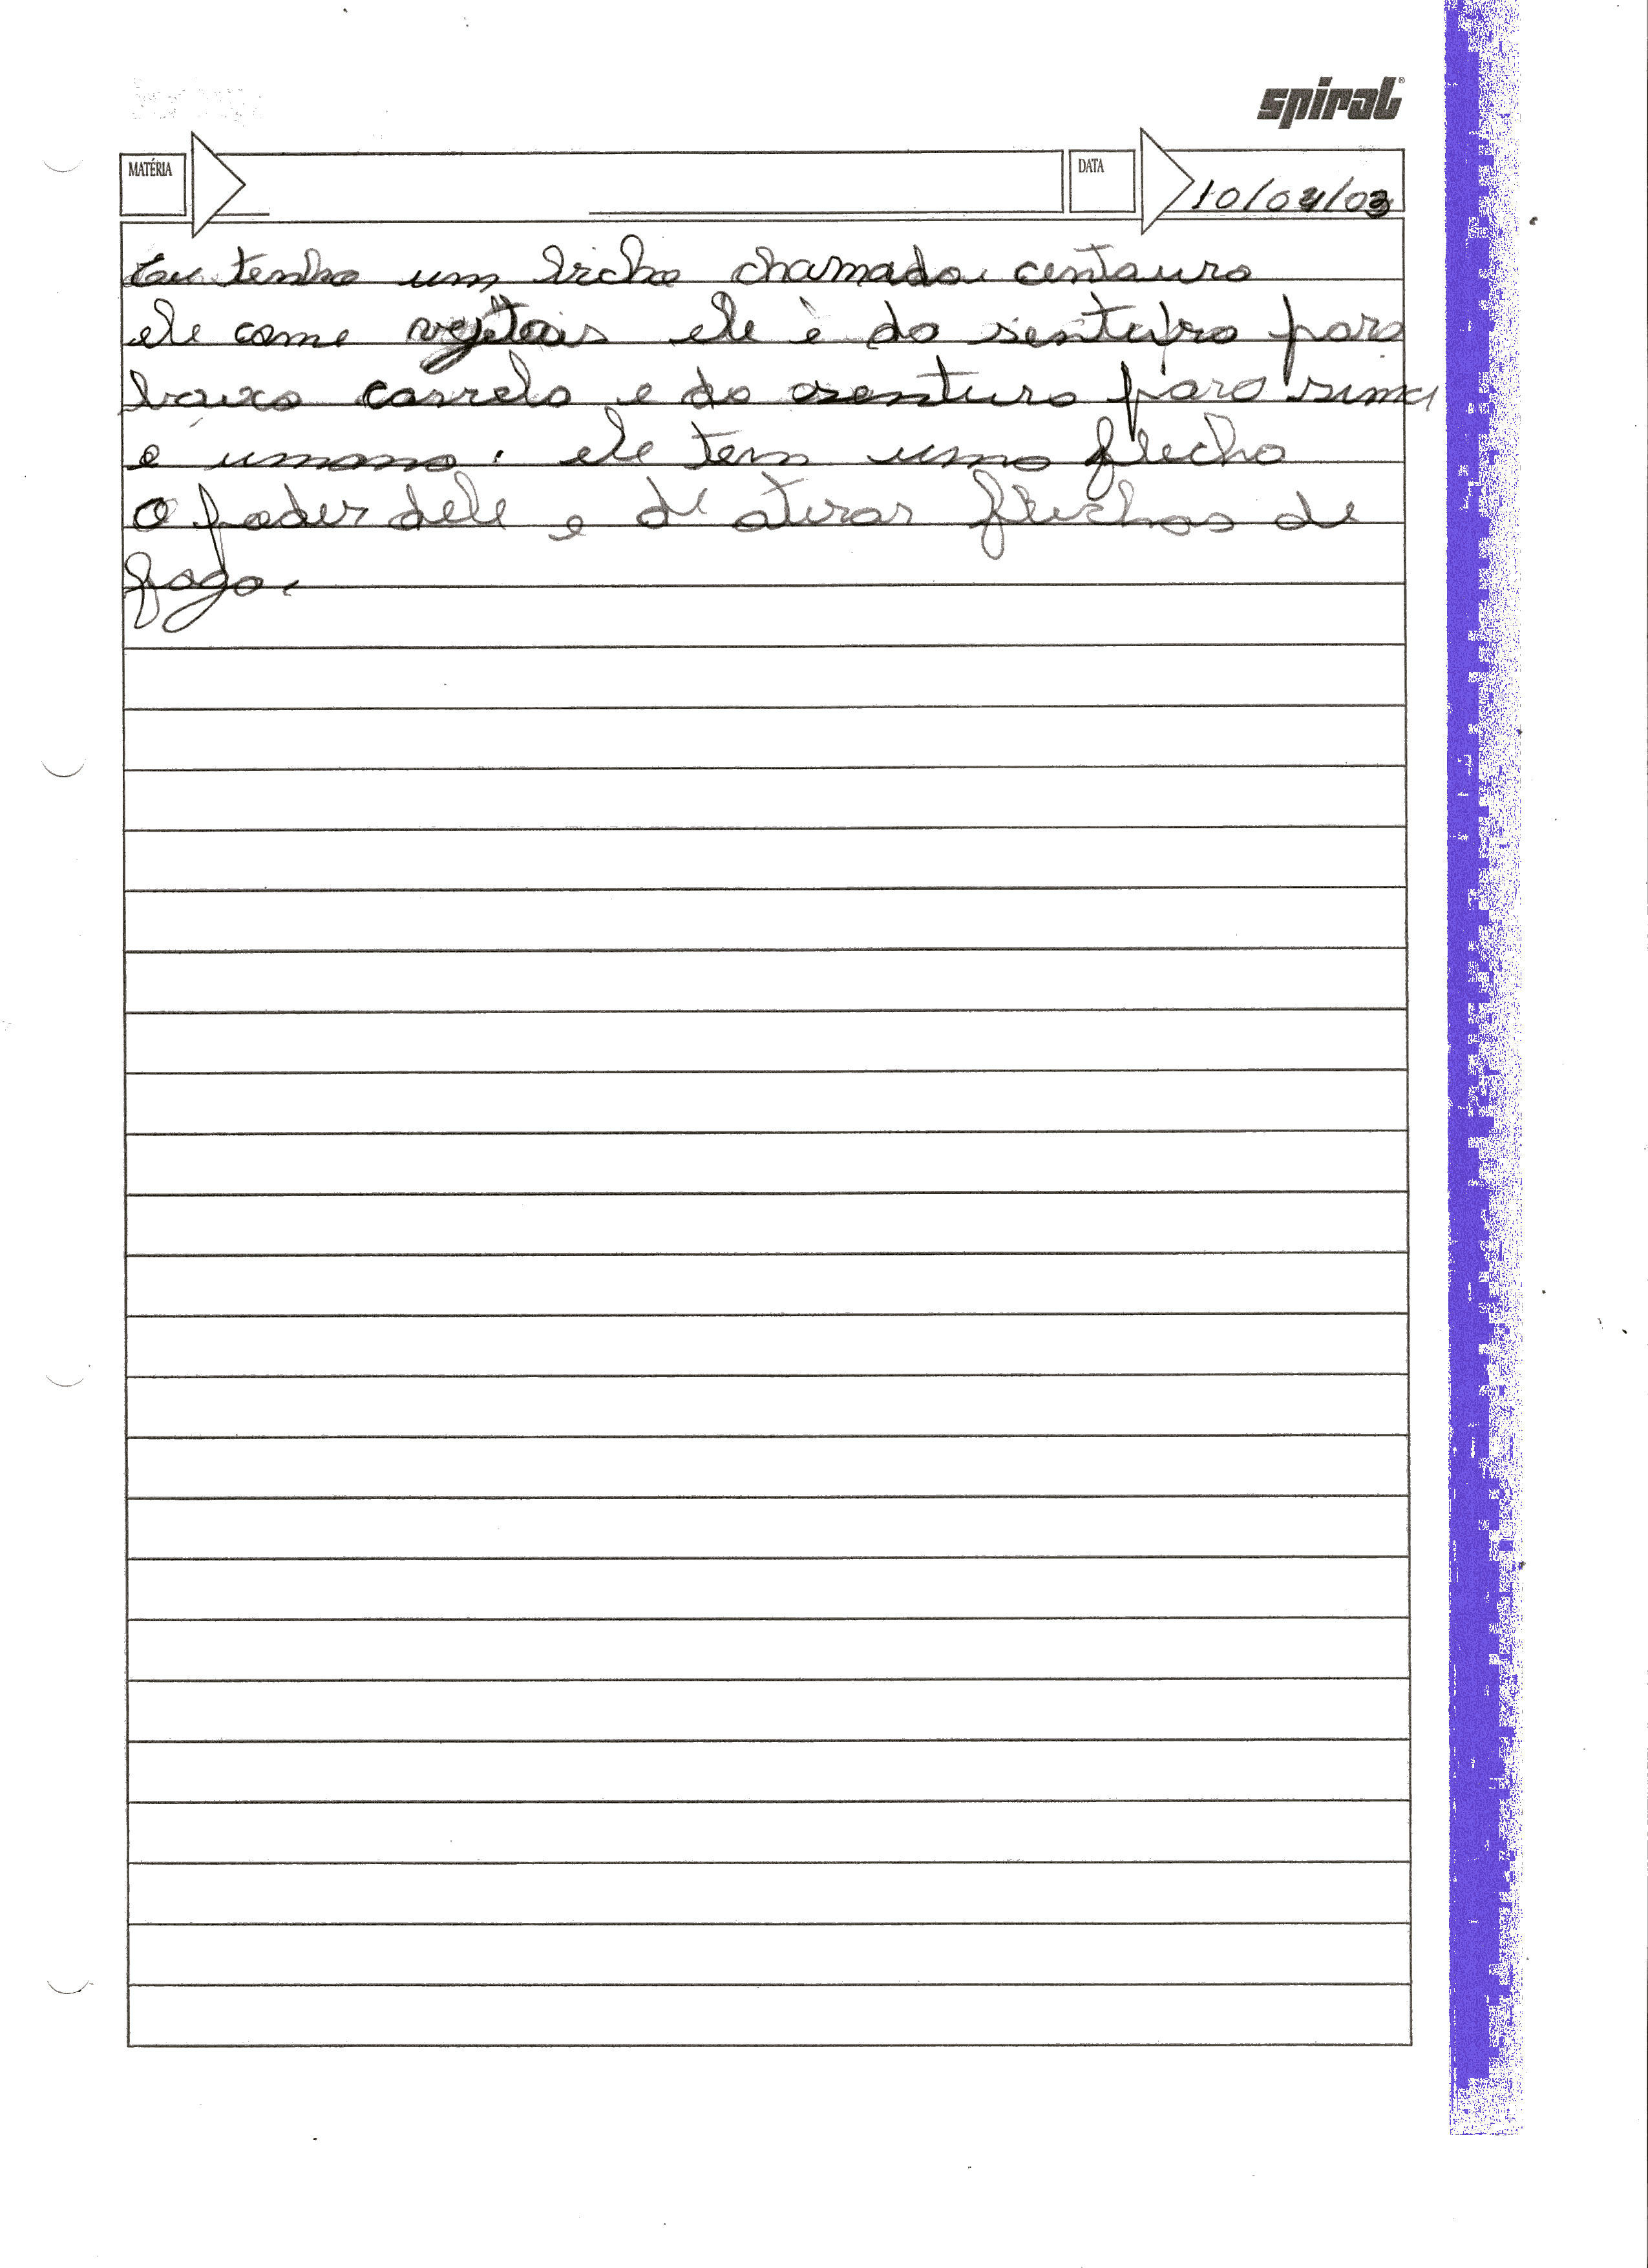 spiral
MATÉRIA DATA 10/04/03
Eu tenho um bicho chamado centauro
ele come vejetais ele é da sentura para
baixo cavalo e da sentura para sima
e umano. ele tem uma flecha
O poder dele e de atirar flechas de
fogo.